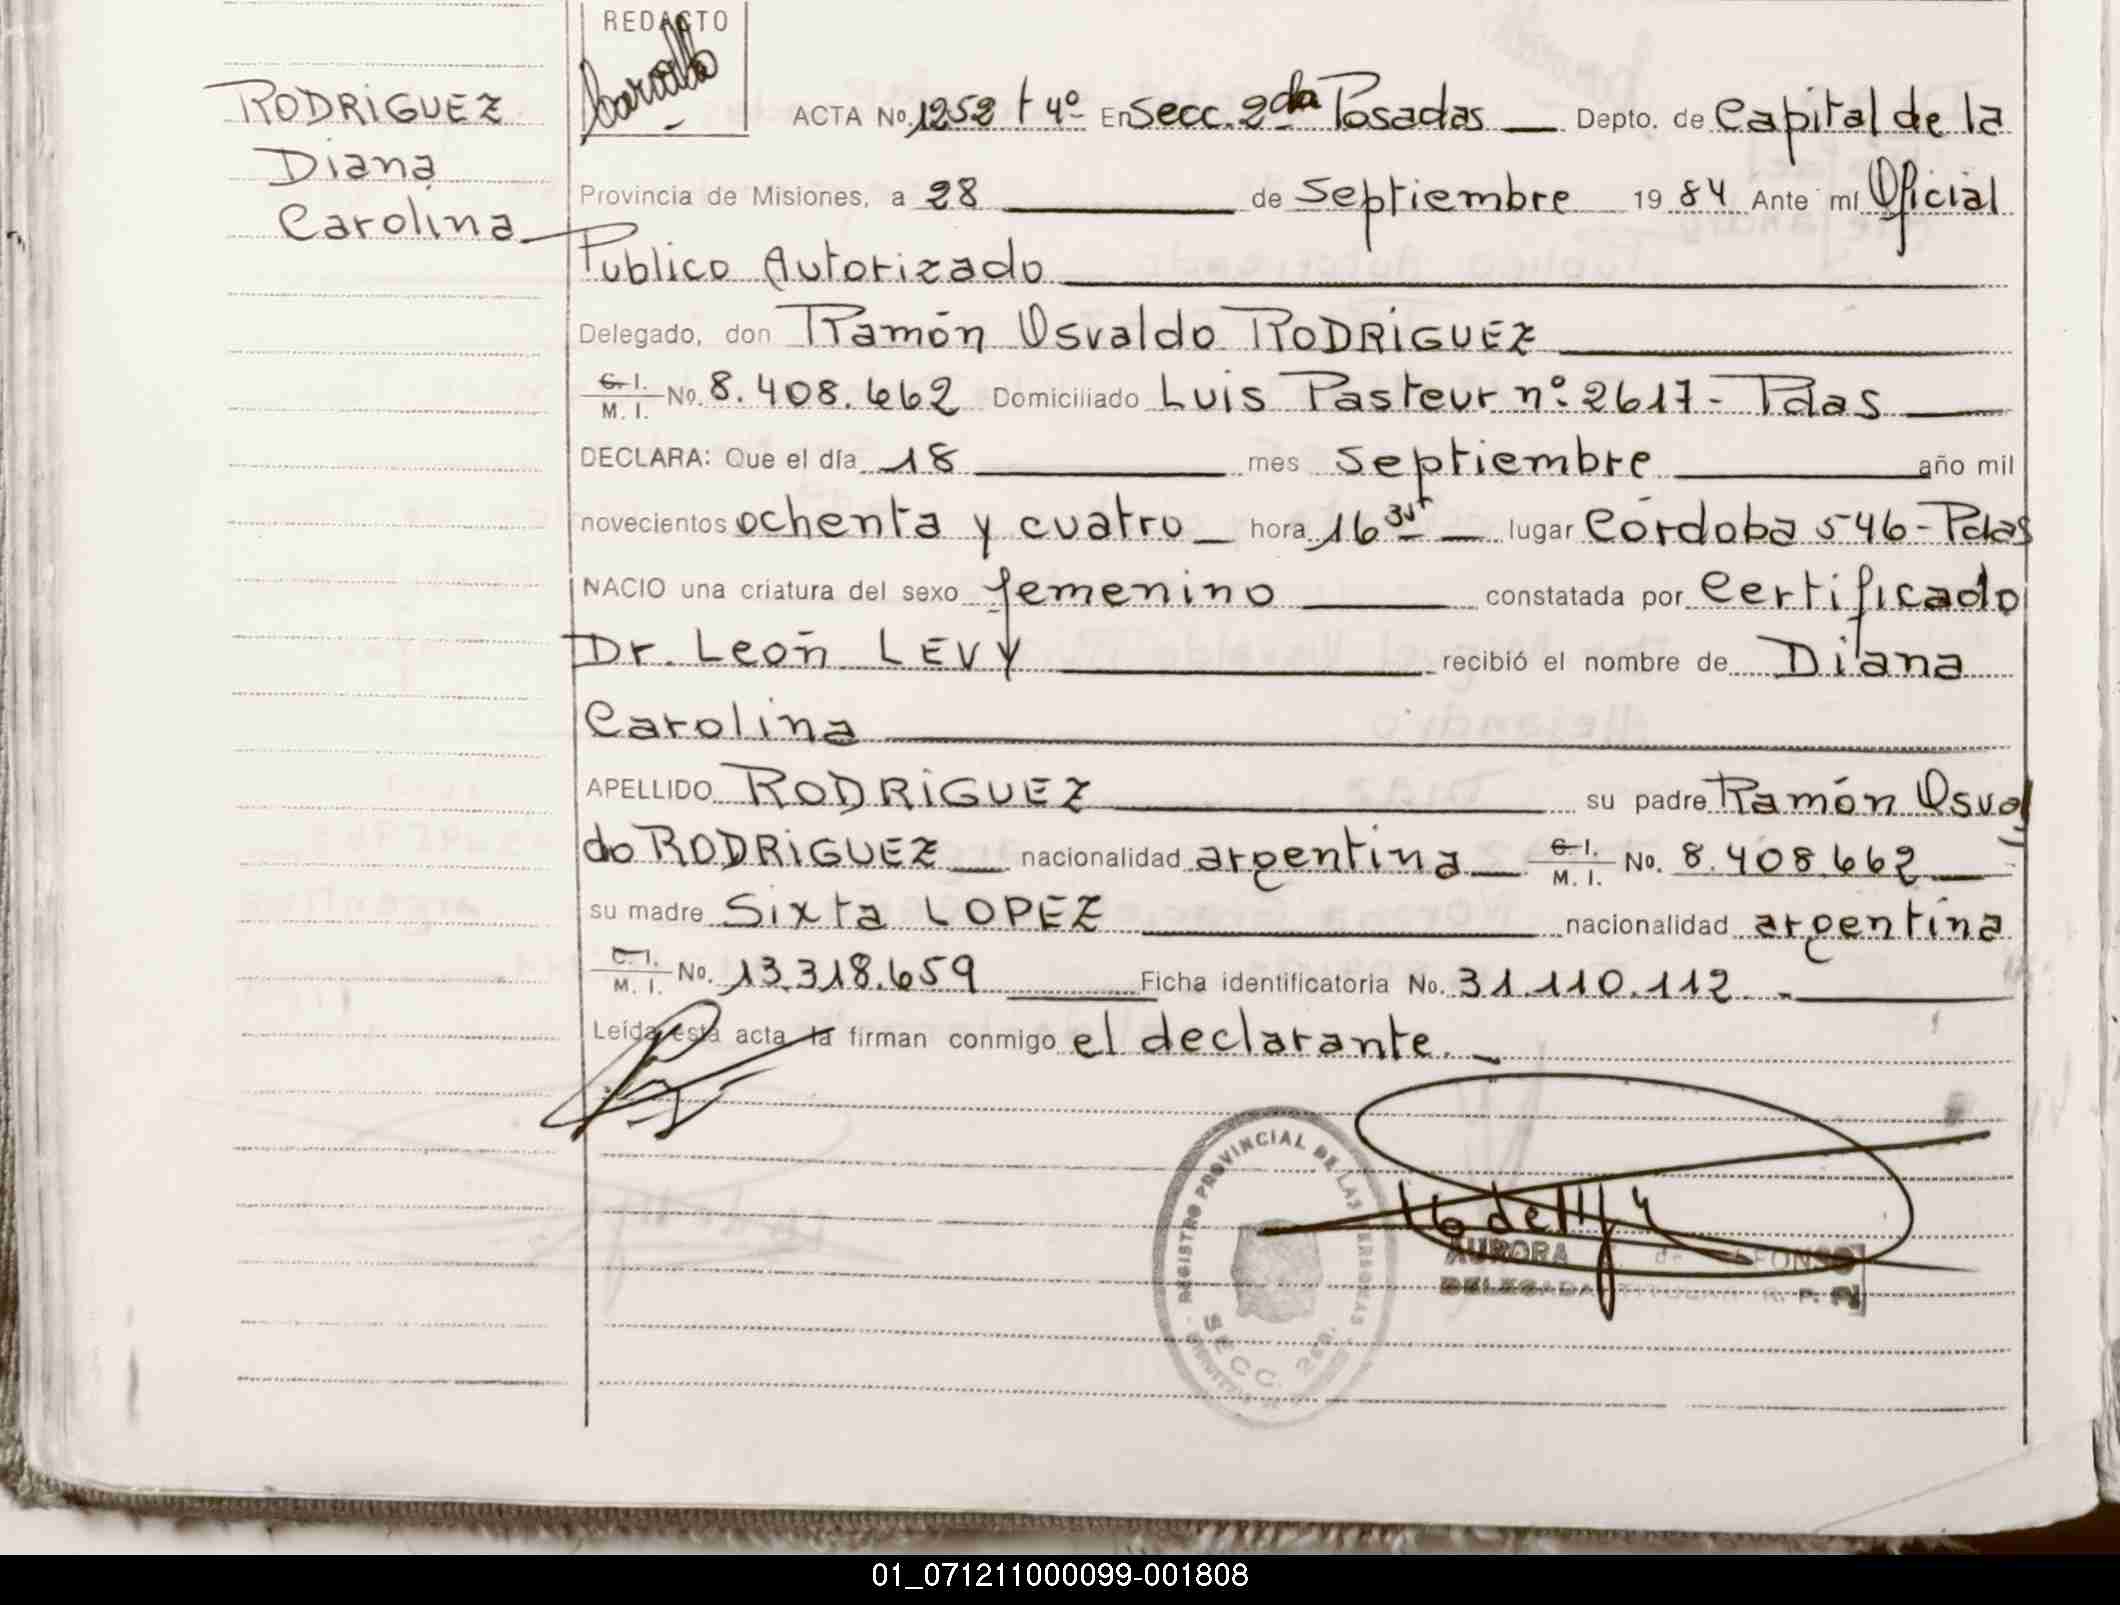 REDACTO
RODRIGUEZ
Diana
Carolina
ACTA No. 1252 t 4º En Secc. 2da Posadas Depto. de Capital de la
Provincia de Misiones, a 28 de Septiembre 19 84 Ante mi Oficial
Publico Autorizado
Delegado, don Ramón Osvaldo RODRIGUEZ
C. I.
M. I. No. 8.408.662 Domiciliado Luis Pasteur nº 2617 - Pdas
DECLARA: Que el día 18 mes Septiembre año mil
novecientos ochenta y cuatro hora 16 lugar Córdoba 546 - Pdas
NACIO una criatura del sexo femenino constatada por Certificado
Dr. León LEVY recibió el nombre de Diana
Carolina
APELLIDO RODRIGUEZ su padre Ramón Osval
do RODRIGUEZ nacionalidad argentina C. I.
M. I. No. 8.408.662
su madre Sixta LOPEZ nacionalidad argentina
C. I.
M. I. No. 13.318.659 Ficha identificatoria No. 31.110.112.-
Leída esta acta la firman conmigo el declarante.-
REGISTRO PROVINCIAL DE LAS PERSONAS
SECC. 2da.
AURORA de
DELEGADA TITULAR R. P. P.
01_071211000099-001808